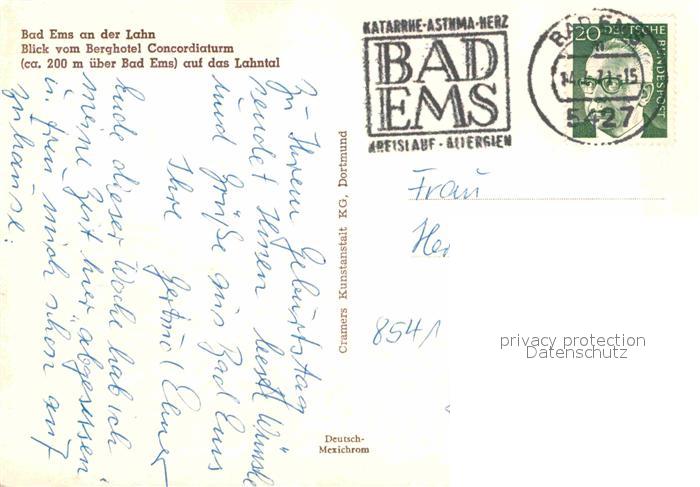 Bad Ems an der Lahn
Blick vom Berghotel Concordiaturm
(ca. 200 m über Bad Ems) auf das Lahntal
KATARRHE-ASTHMA-HERZ
BAD
EMS
KREISLAUF-ALLERGIEN
BAD EMS
5427
20 DEUTSCHE
BUNDESPOST
Zu Ihrem Geburtstag
sendet Ihnen herzl. Wünsche
und Grüße aus Bad Ems
Ihre Gertrud
Ende dieser Woche hab ich
meine Zeit hier "abgesessen"
u. freu mich schon auf
zuhause.
Cramers Kunstanstalt KG, Dortmund
Frau
8541
privacy protection
Datenschutz
Deutsch-
Mexichrom